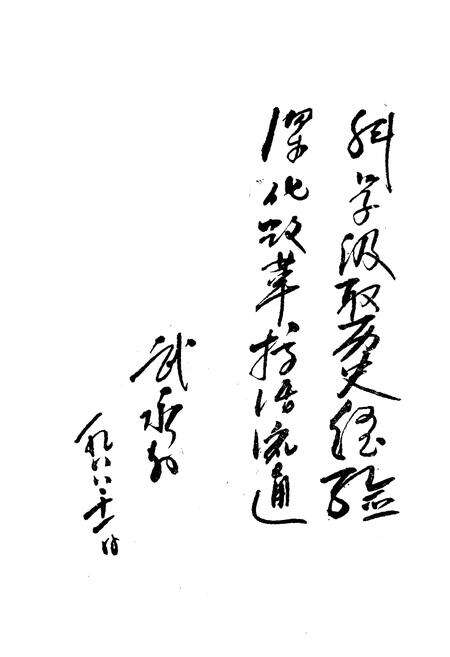 科学汲取历史经验
深化改革搞活流通
武
一九八八·十一